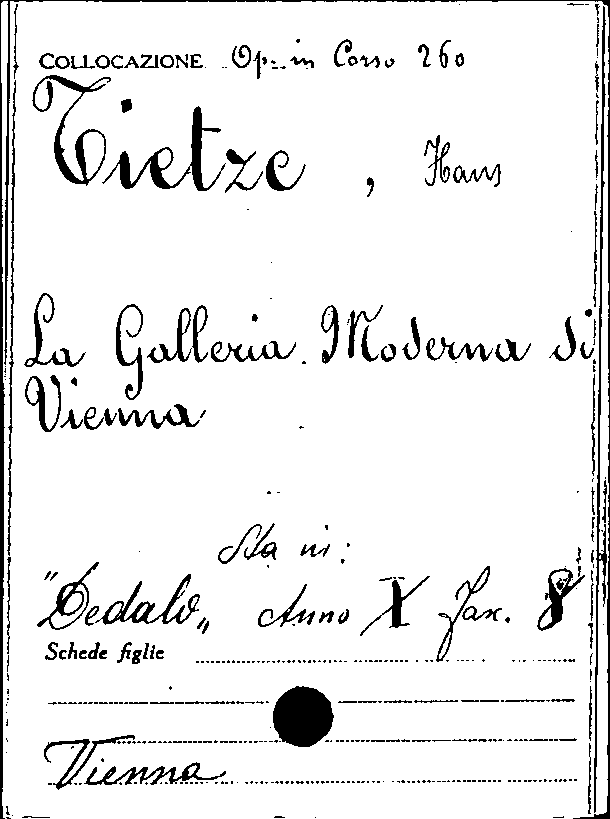 COLLOCAZIONE Op. in Corso 260
Tietze, Hans
La Galleria Moderna di
Vienna
Sta in:
"Dedalo„ Anno X Fax. 8
Schede figlie
Vienna